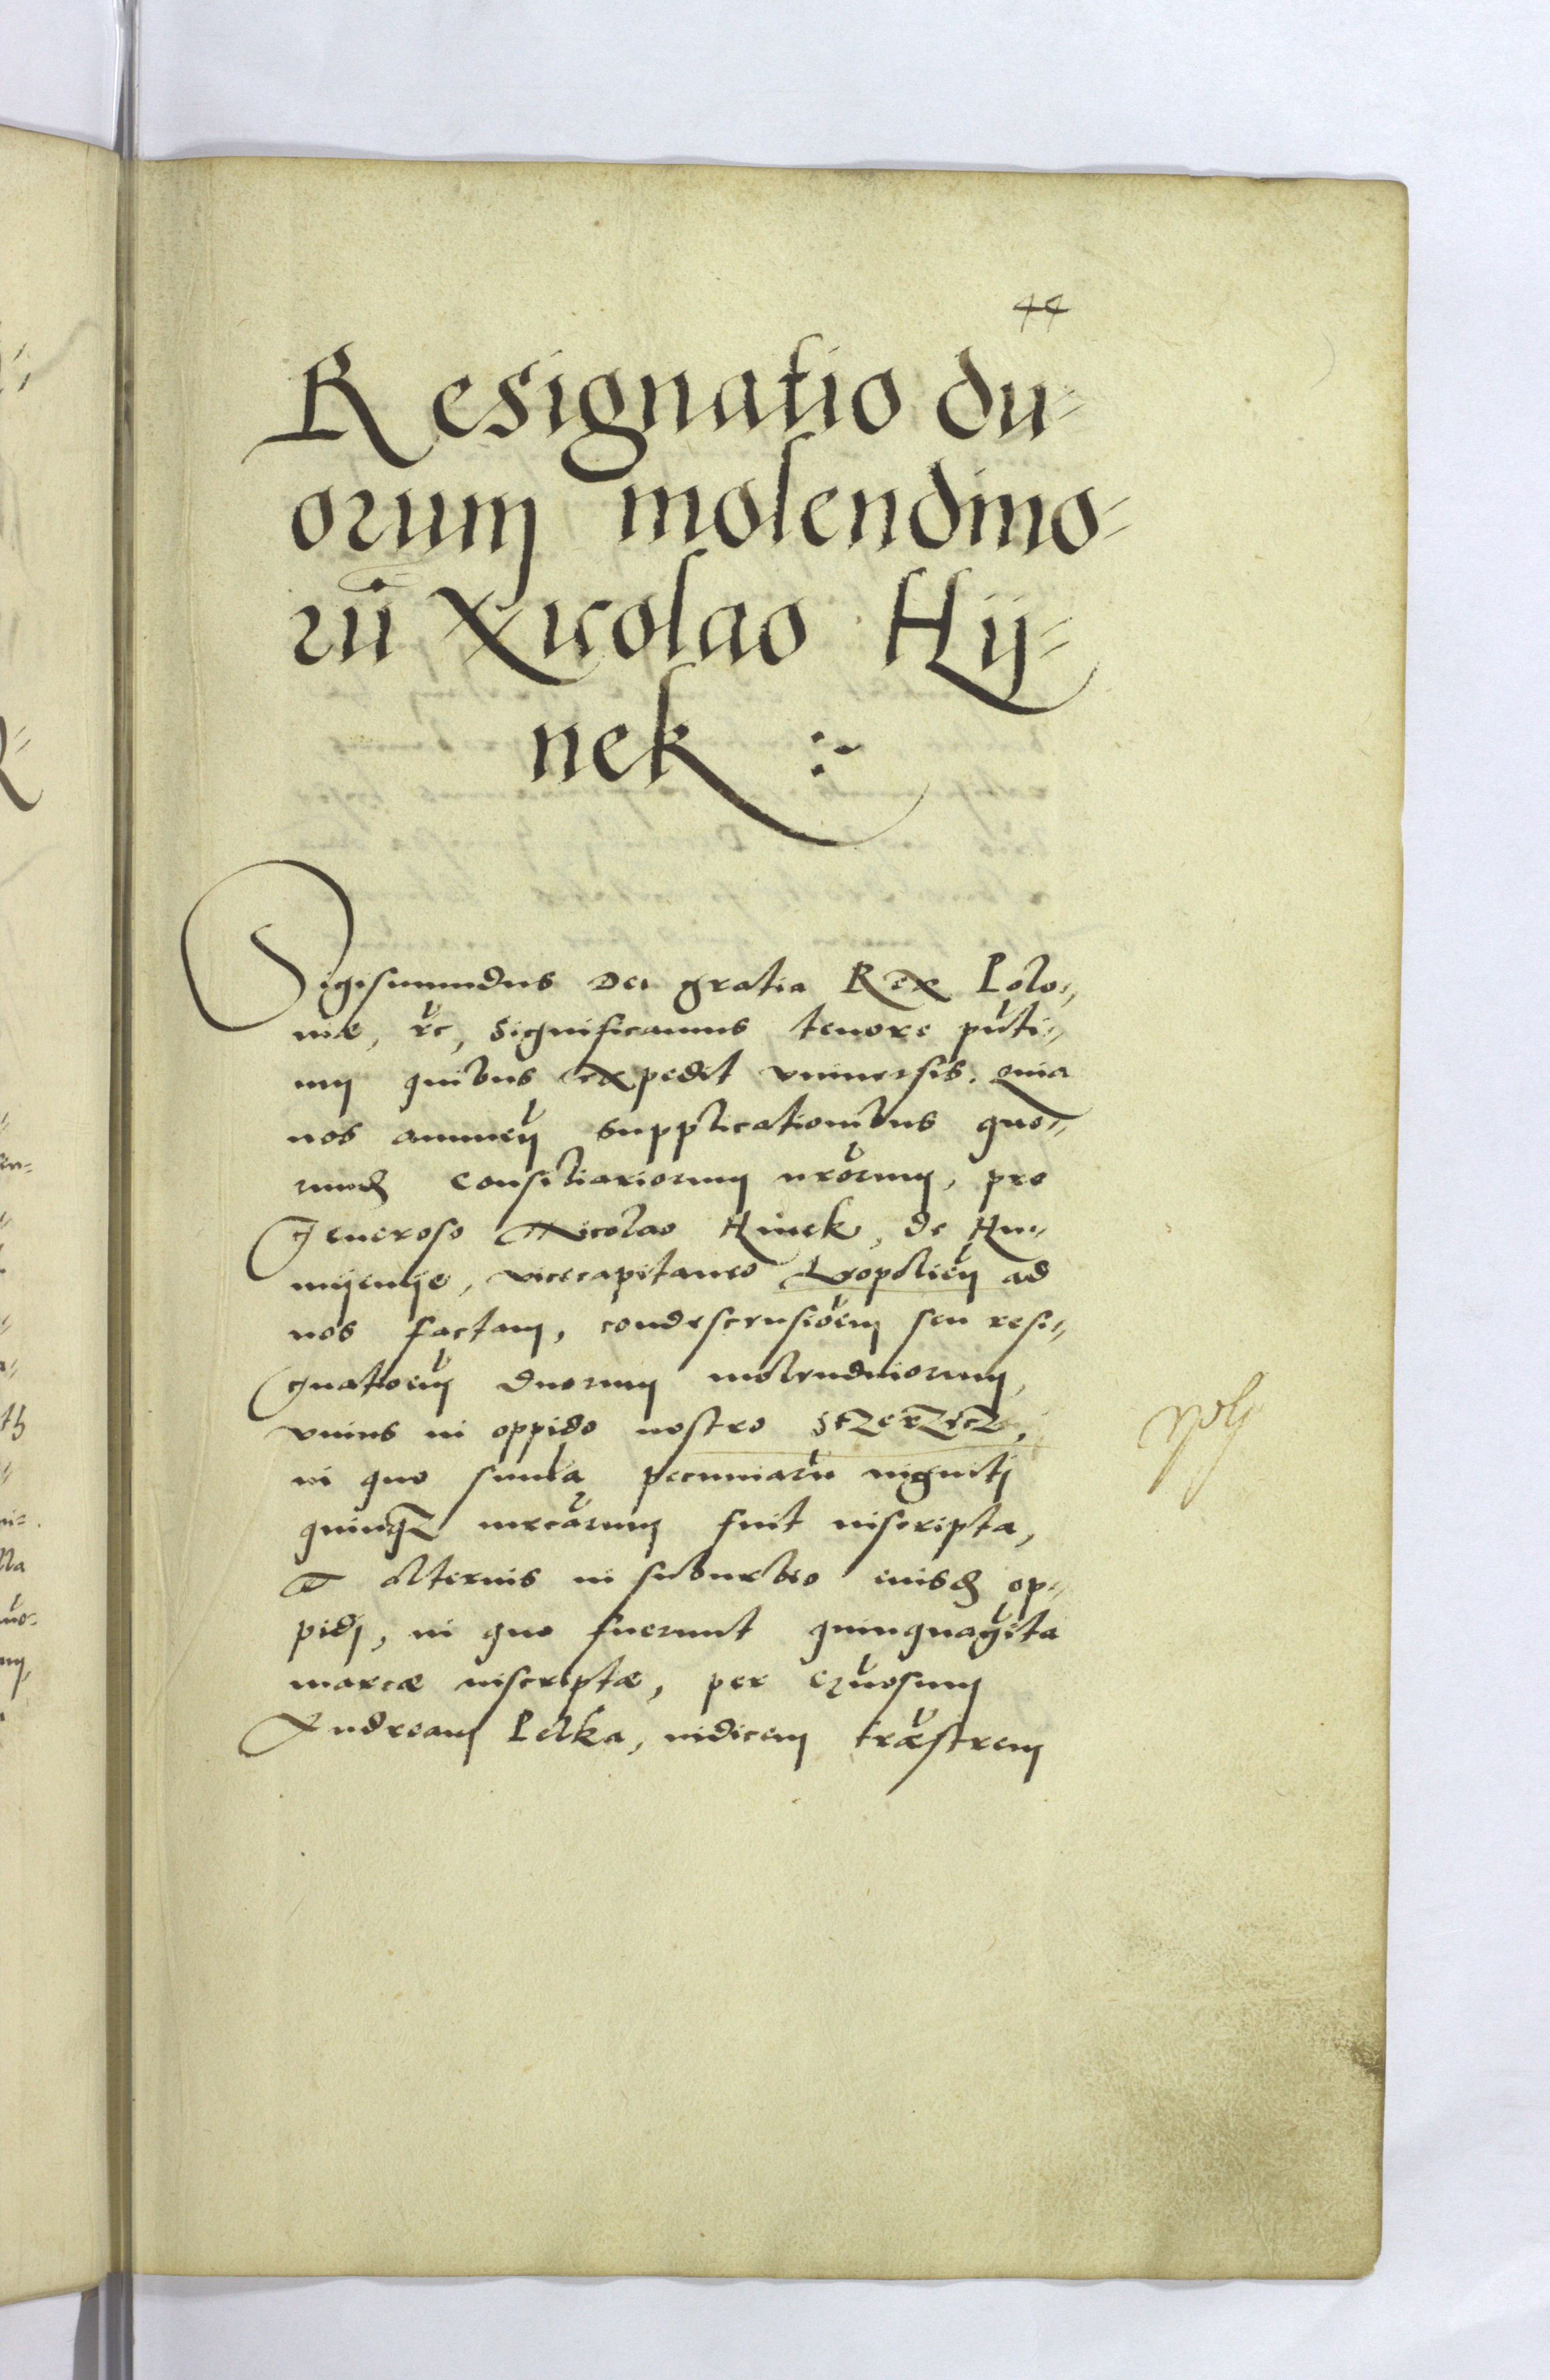 44
Resignatio du=
orum molendino=
rũ Nicolao Hij=
nek :~
Sigismundus Dei gratia Rex Polo=
niæ, &c, Significamus tenore pñti=
um quibus expedit vniuersis. Quia
nos annueñ supplicationibus quo=
rund consiliariorum nrõrum, pro
Generoso Nicolao Hinek, de
vicecapitaneo Leopolieñ ad
nos factam, condescensiõem seu resi=
gnatioem duorum molendinorum,
vnius in oppido nostro SczerZecZ,
in quo sum̃a pecuniarũ viginti
quinqʒ mrcãrum fuit inscripta,
& alterius in suburbio eiusd op=
pidj, in quo fuerunt quinquagĩta
marcæ inscriptæ, per gñosum
Andream Pelka, iudicem trãestrem